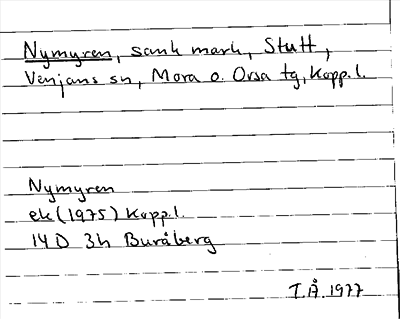 Nymyren, sank mark, Stutt,
Venjans sn, Mora o. Orsa tg, Kopp. l.
Nymyren
ek (1975) Kopp. l.
14D 3h Buråberg
T.Å. 1977